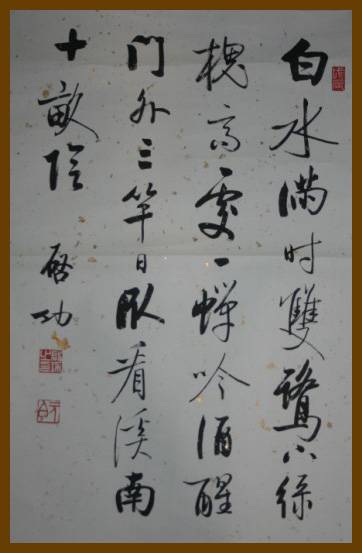 白水滿时雙鷺下綠
槐高處一蟬吟酒醒
門外三竿日臥看溪南
十畝陰
啓功